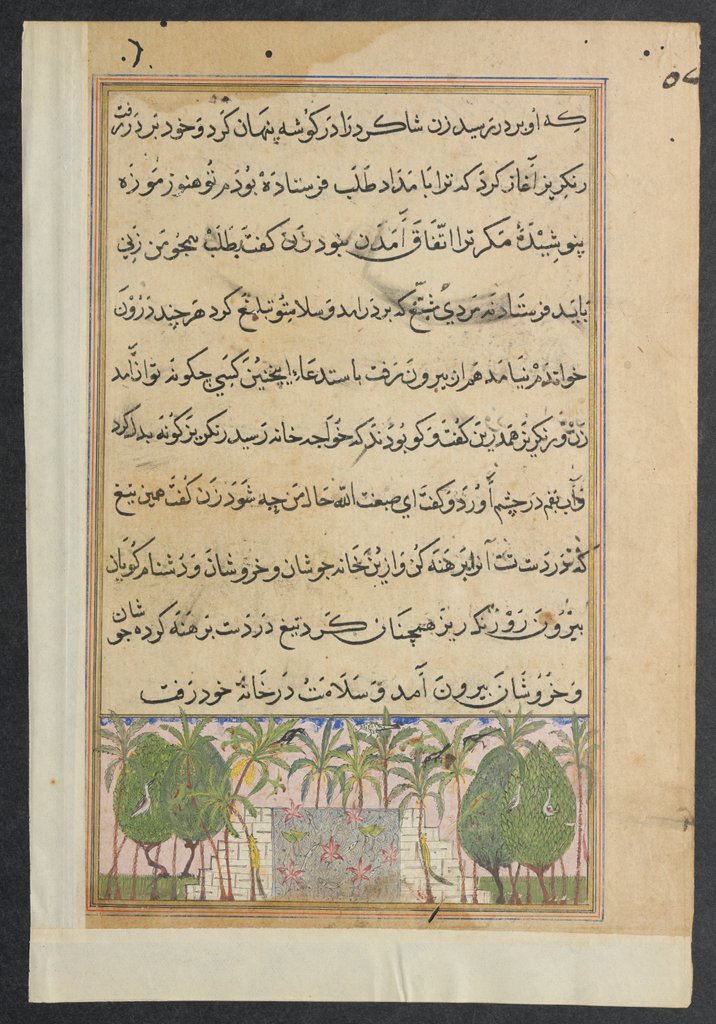 که او بر در رسید زن شاکرد را در کوشه پنهان کرد و خود بر در رفت
رنکریز آغاز کرد که ترا بامداد طلب فرستاده بودم تو هنوز موزه
پوشیده مکر ترا اتفاق آمدن نبود زن کفت بطلب همچو من زنی
باید فرستاد نه مردی که بر در امد و سلام تو تبلیغ کرد هر چند درون
خواندم نیامد هم از بیرون رفت باستدعاء اینچنین کسی چکونه توان آمد
زن و رنکریز همدرین کفت و کو بودند که خواجه خانه رسید رنکریز کونه بدل کرد
و آب بقم در چشم آورد و کفت ای صبغت الله حال من چه شود زن کفت همین تیغ
که در دست تست آنرا برهنه کن و ازین خانه جوشان و خروشان و دشنام کویان
بیرون رو رنکریز همچنان کرد تیغ در دست برهنه کرده جوشان
و خروشان بیرون آمد و سلامت در خانه خود رفت